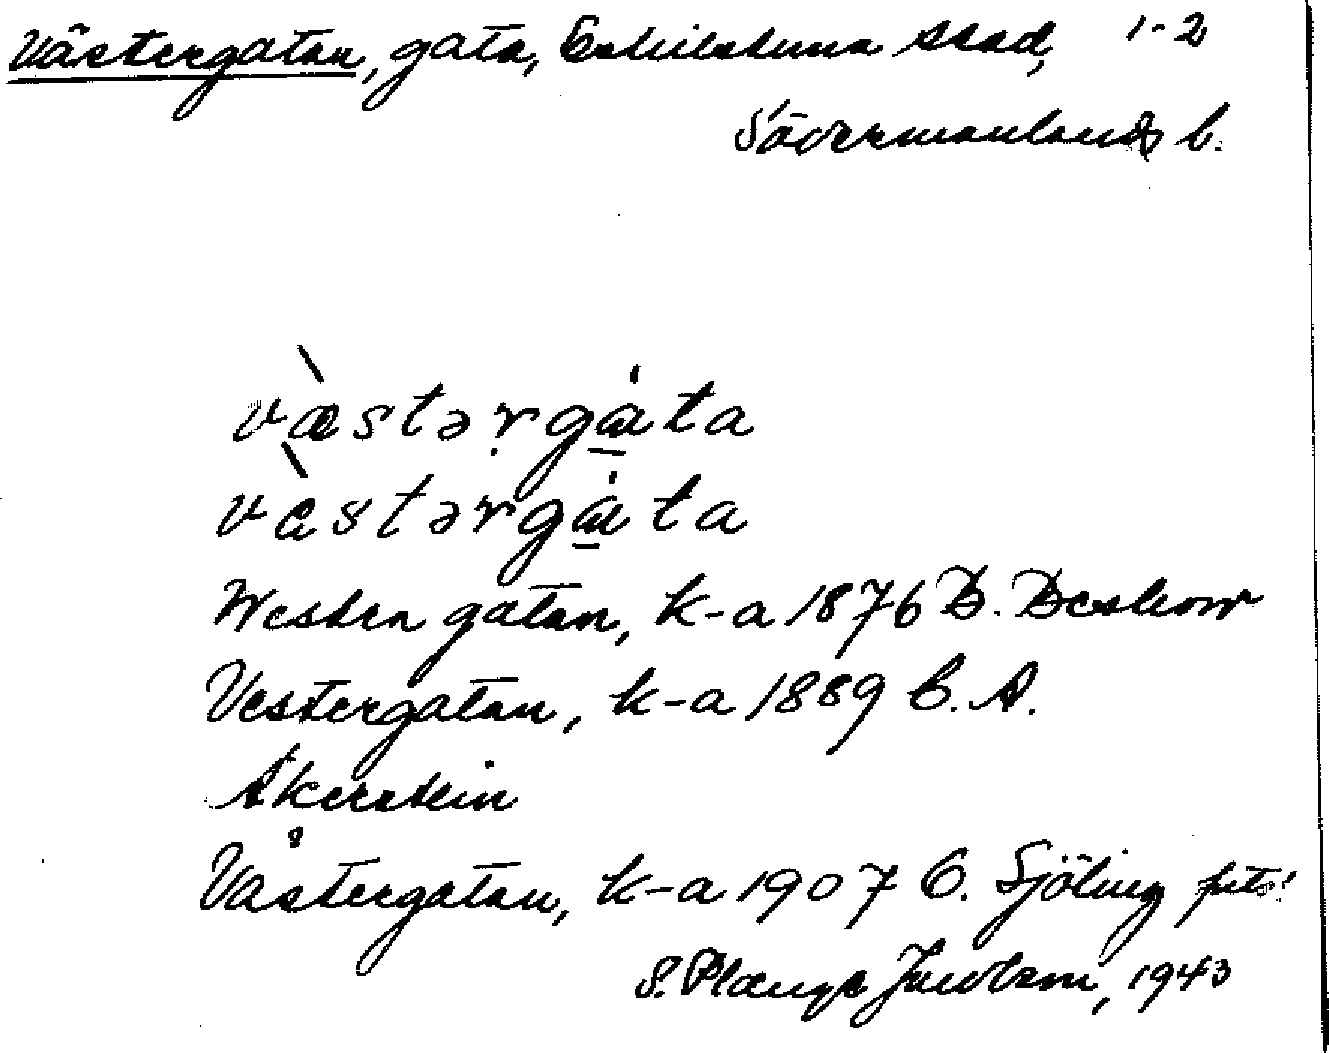 Västergatan, gata, Eskilstuna stad, 1-2
Södermanlands l.
væ̀stərgɑ́ta
vàstərgɑ́ta
Westra gatan, k-a 1876 D. Beskow
Vestergatan, k-a 1889 C. A.
Åkerstein
Västergatan, k-a 1907 C. Sjöling
S. Jacobson, 1943